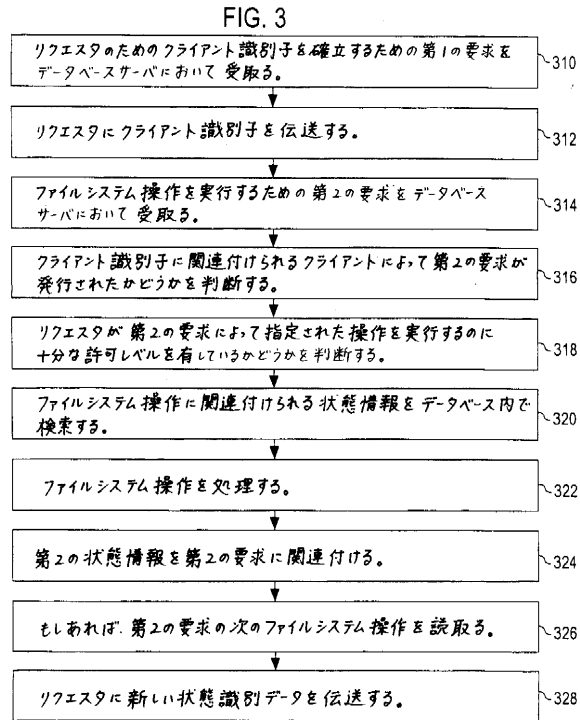 FIG. 3
リクエスタのためのクライアント識別子を確立するための第1の要求を
データベースサーバにおいて受取る。
310
リクエスタにクライアント識別子を伝送する。
312
ファイルシステム操作を実行するための第2の要求をデータベース
サーバにおいて受取る。
314
クライアント識別子に関連付けられるクライアントによって第2の要求が
発行されたかどうかを判断する。
316
リクエスタが第2の要求によって指定された操作を実行するのに
十分な許可レベルを有しているかどうかを判断する。
318
ファイルシステム操作に関連付けられる状態情報をデータベース内で
検索する。
320
ファイルシステム操作を処理する。
322
第2の状態情報を第2の要求に関連付ける。
324
もしあれば、第2の要求の次のファイルシステム操作を読取る。
326
リクエスタに新しい状態識別データを伝送する。
328